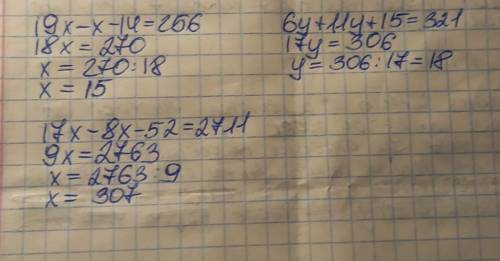 19x-x-14=256
18x=270
x=270:18
x=15
6y+11y+15=321
17y=306
y=306:17=18
17x-8x-52=2711
9x=2763
x=2763:9
x=307